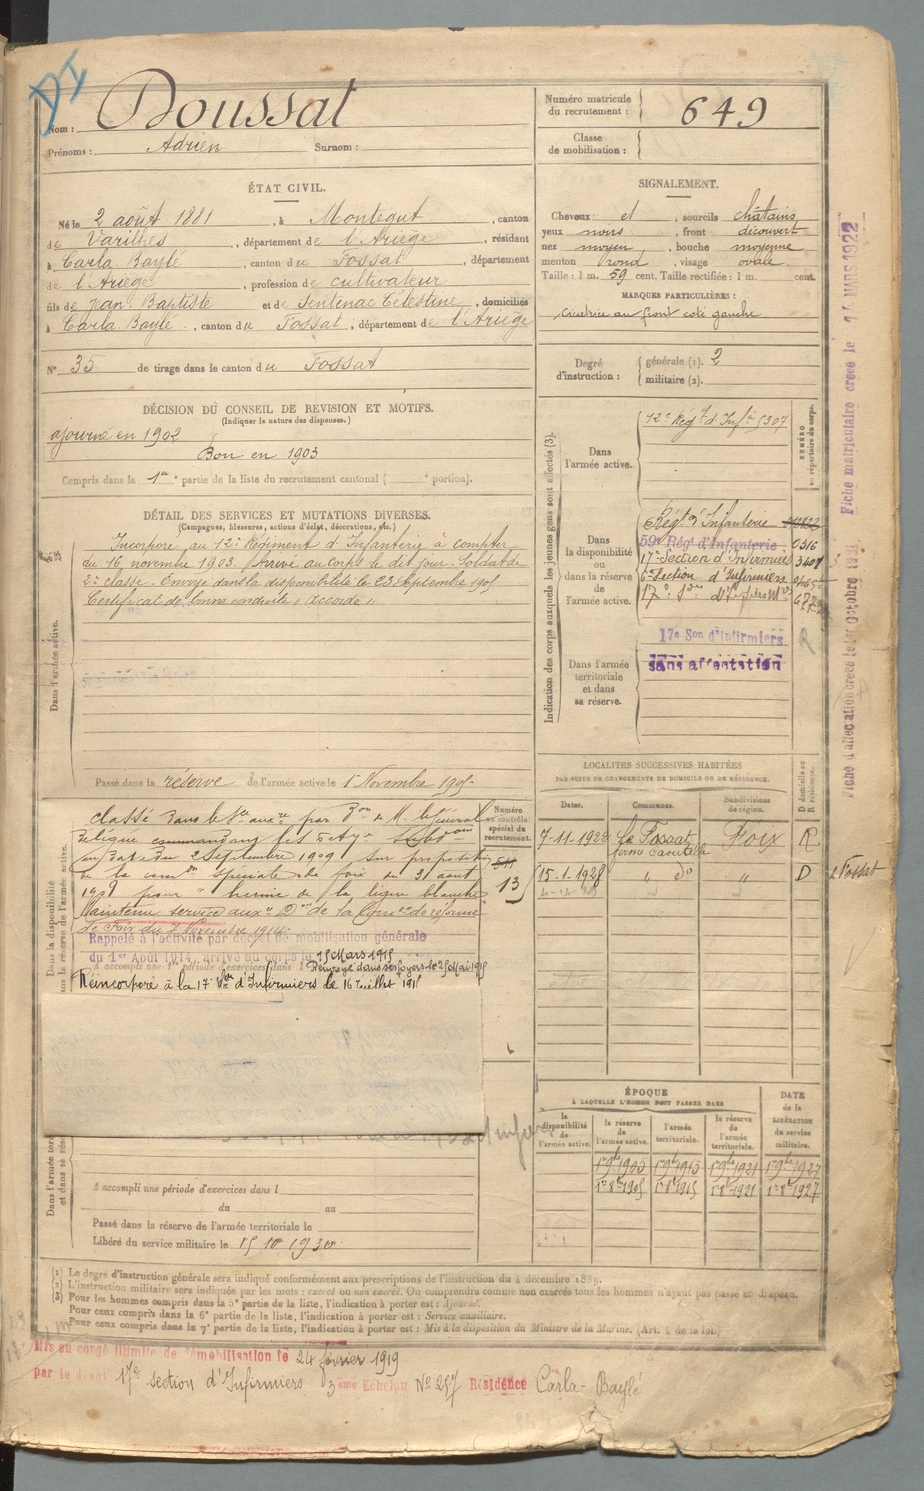 DI
Nom : Doussat
Prénoms : Adrien Surnom :
Numéro matricule
du recrutement : 649
Classe
de mobilisation :
ÉTAT CIVIL.
Né le 2 août 1881, à Montégut, canton
de Varilhes, département de l'Ariège, résidant
à Carla-Bayle, canton du Fossat, département
de l'Ariège, profession de cultivateur
fils de Jean-Baptiste et de Sentenac Célestine, domiciliés
à Carla-Bayle, canton du Fossat, département de l'Ariège
N° 35 de tirage dans le canton du Fossat
SIGNALEMENT.
Cheveux et , sourcils châtains
yeux noirs , front découvert
nez moyen , bouche moyenne
menton rond , visage ovale
Taille : 1 m. 59 cent. Taille rectifiée : 1 m. cent.
MARQUES PARTICULIÈRES :
cicatrice au front coté gauche
Degré
d'instruction :
générale (1). 2
militaire (2).
DÉCISION DU CONSEIL DE REVISION ET MOTIFS.
(Indiquer la nature des dispenses.)
ajourné en 1902
Bon en 1903
Compris dans la 1re partie de la liste du recrutement cantonal ( portion).
DÉTAIL DES SERVICES ET MUTATIONS DIVERSES.
(Campagnes, blessures, actions d'éclat, décorations, etc.)
Dans l'armée active.
Incorporé au 12e Régiment d'Infanterie à compter
du 16 novembre 1903. Arrivé au corps le dit jour. Soldat de
2e classe. Envoyé dans la disponibilité le 23 Septembre 1905
Certificat de bonne conduite « Accordé »
Passé dans la réserve de l'armée active le 1er Novembre 1905
Indication des corps auxquels les jeunes gens sont affectés (3).
NUMÉRO
au répertoire du corps.
Dans
l'armée active.
12e Régt d'Infie 5307
Dans
la disponibilité
ou
dans la réserve
de
l'armée active.
Régt d'Infanterie
59e Rég' d'Infanterie 0316
17e Section d'Infirmiers 3401
6e Section d'Infirmiers
Dans l'armée
territoriale
et dans
sa réserve.
17e Son d'Infirmiers
sans affectation
R
Fiche matriculaire créée le 14 MARS 1922
LOCALITÉS SUCCESSIVES HABITÉES
PAR SUITE DE CHANGEMENTS DE DOMICILE OU DE RÉSIDENCE.
Dates. Communes. Subdivisions
de région. D domicile ou
R résidence.
7-11-1922 Le Fossat Foix R
15-1-1928 " do " D
Dans la disponibilité
ou dans la réserve de l'armée active.
Numéro
au contrôle
spécial du
recrutement.
13
classé dans le Sce auxre par Don de M. le Général
en date du 2 Septembre 1909, sur proposition
de la comon spéciale de Foix du 31 août
1909 pour "hernie de la ligne blanche"
Maintenu service auxre Don de la Comon de réforme
de Foix du 7 Novembre 1914.
Rappelé à l'activité par décret de mobilisation générale
du 1er Août 1914, arrivé au corps le 15 Mars 1915
A accompli une 1re période d'exercices dans l Renvoyé dans ses foyers le 25 Mai 1915
Réincorporé à la 17e Son d'Infirmiers le 16 Juillet 1915
ÉPOQUE
À LAQUELLE L'HOMME DOIT PASSER DANS
la
disponibilité
de
l'armée active.
la réserve
de
l'armée active.
l'armée
territoriale.
la réserve
de
l'armée
territoriale.
DATE
de la
LIBÉRATION
du service
militaire.
1er 9bre 1905 1er 9bre 1915 1er 9bre 1921 1er 9bre 1927
1er 8bre 1905 1er 8bre 1915 1er 8bre 1921 1er 8bre 1927
A accompli une période d'exercices dans l
du au
Passé dans la réserve de l'armée territoriale le
Libéré du service militaire le 15 10 1930
(1) Le degré d'instruction générale sera indiqué conformément aux prescriptions de l'instruction du 4 décembre 1889.
(2) L'instruction militaire sera indiquée par les mots : exercé ou non exercé. On comprendra comme non exercés tous les hommes n'ayant pas passé au drapeau.
(3) Pour les hommes compris dans la 5e partie de la liste, l'indication à porter est : Ajourné.
Pour ceux compris dans la 6e partie de la liste, l'indication à porter est : Service auxiliaire.
Pour ceux compris dans la 7e partie de la liste, l'indication à porter est : Mis à la disposition du Ministre de la Marine. (Art. 4 de la loi.)
Mis en congé illimité de démobilisation le 24 février 1919
par le dépôt 17e section d'Infirmiers 3ème Echelon No 257 Résidence Carla-Bayle